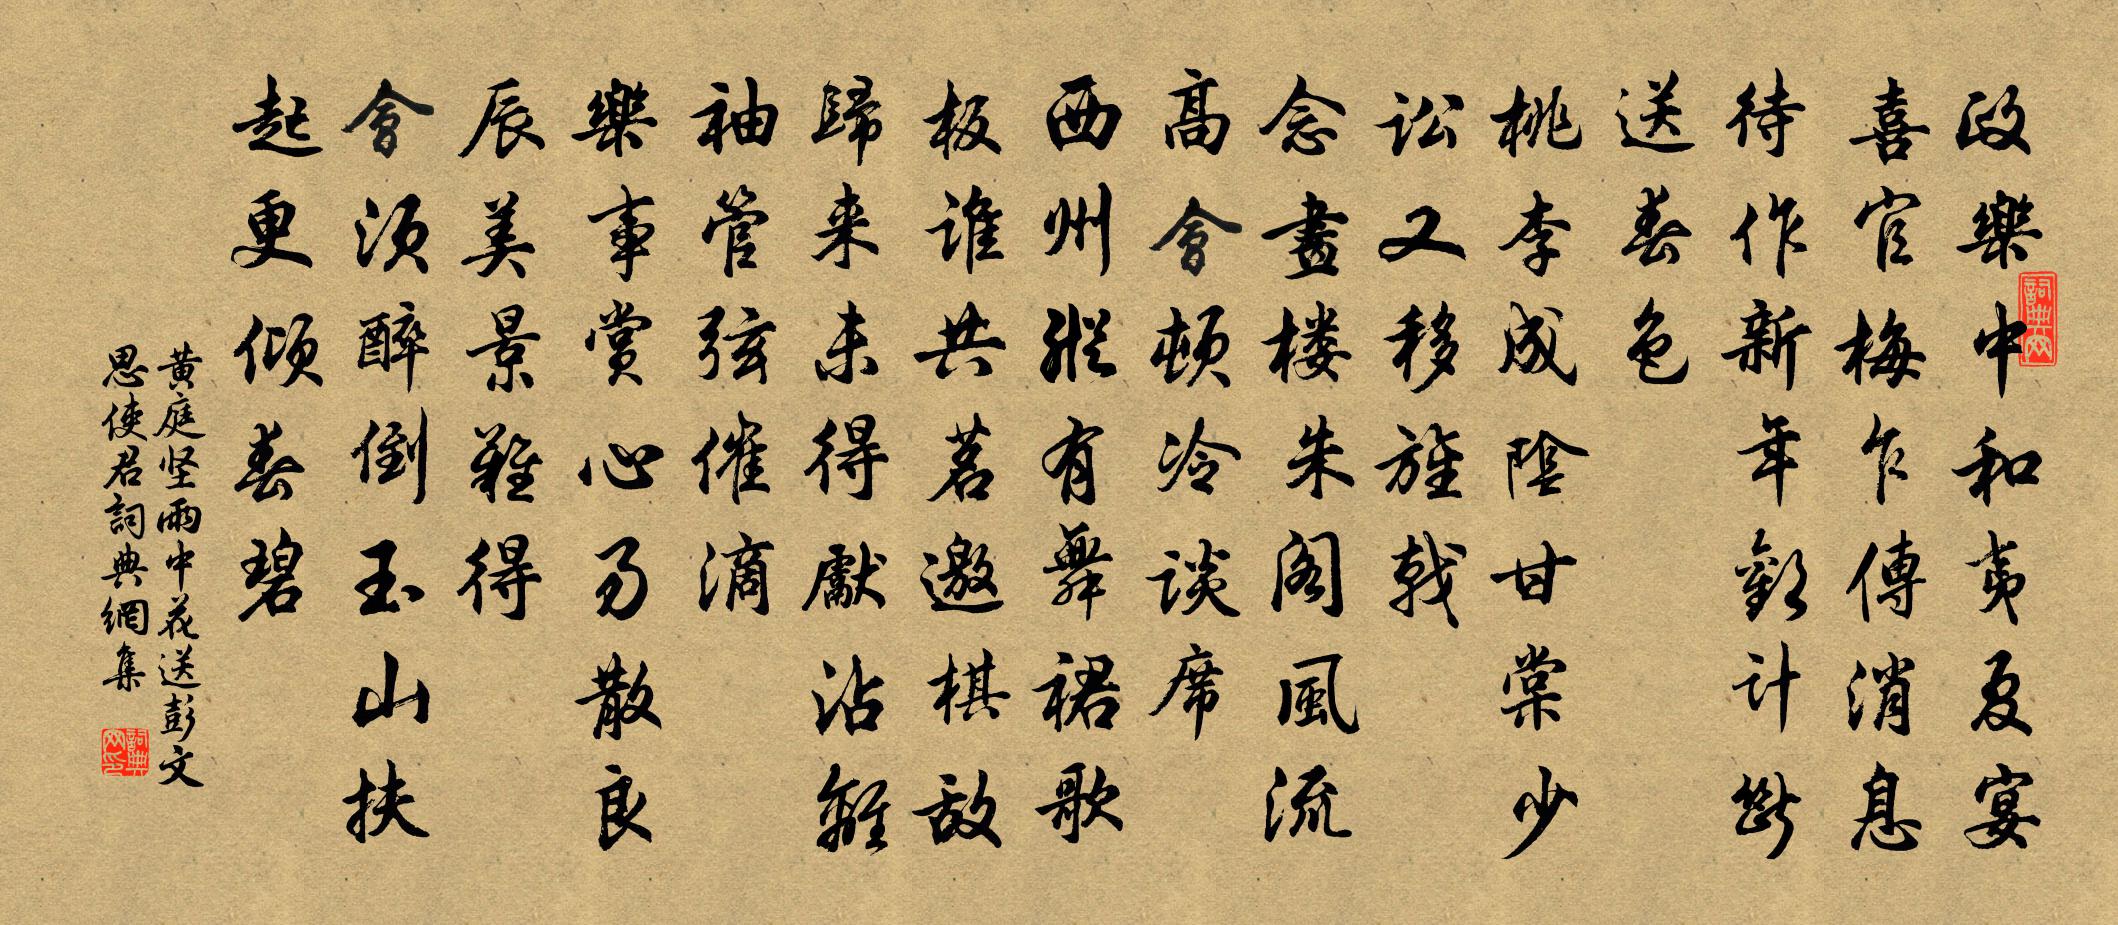 政樂中和夷夏宴
喜官梅乍傳消息
待作新年歡計斷
送春色
桃李成陰甘棠少
訟又移旌戟
念畫楼朱阁風流
高會頓冷談席
西州縱有舞裙歌
板誰共茗邀棋敌
歸来未得獻沾離
袖管弦催滴
樂事賞心易散良
辰美景難得
會須醉倒玉山扶
起更傾春碧
黄庭坚雨中花送彭文
思使君詞典網集
詞典网
詞典网印